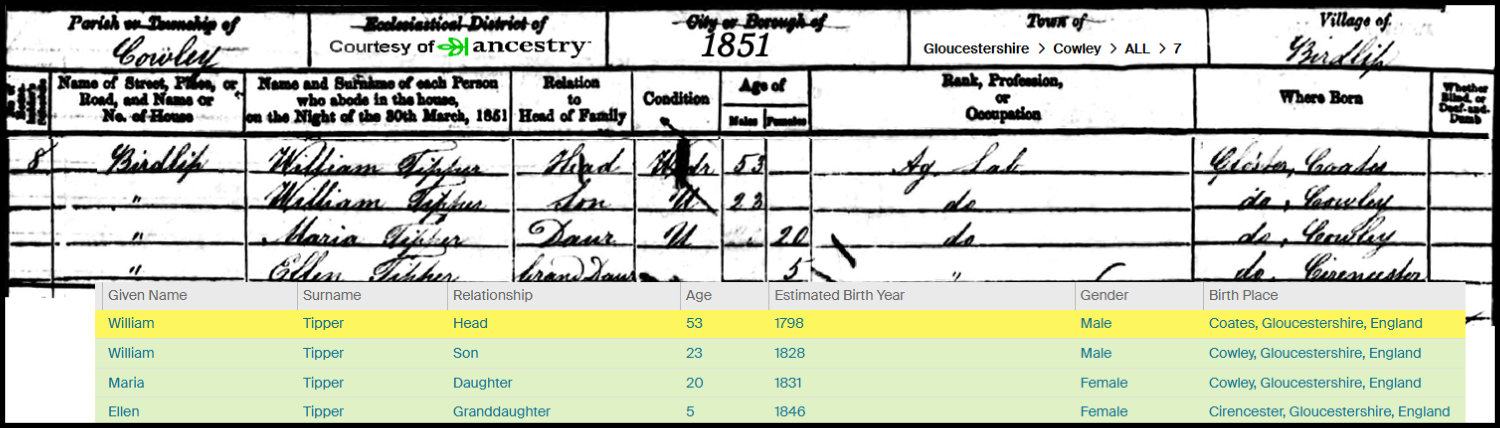 Parish or Township of Ecclesiastical District of City or Borough of Town of Village of
Cowley Courtesy of ancestry 1851 Gloucestershire > Cowley > ALL > 7 Birdlip
Name of Street, Place, or Road, and Name or No. of House
Name and Surname of each Person who abode in the house, on the Night of the 30th March, 1851
Relation to Head of Family
Condition
Age of
Males Females
Rank, Profession, or Occupation
Where Born
Whether Blind, or Deaf-and-Dumb
8 Birdlip William Tipper Head Widr 53 Ag Lab Gloster, Coates
" William Tipper Son U 23 do do, Cowley
" Maria Tipper Daur U 20 do do, Cowley
" Ellen Tipper Grand Daur 5 " do, Cirencester
Given Name Surname Relationship Age Estimated Birth Year Gender Birth Place
William Tipper Head 53 1798 Male Coates, Gloucestershire, England
William Tipper Son 23 1828 Male Cowley, Gloucestershire, England
Maria Tipper Daughter 20 1831 Female Cowley, Gloucestershire, England
Ellen Tipper Granddaughter 5 1846 Female Cirencester, Gloucestershire, England